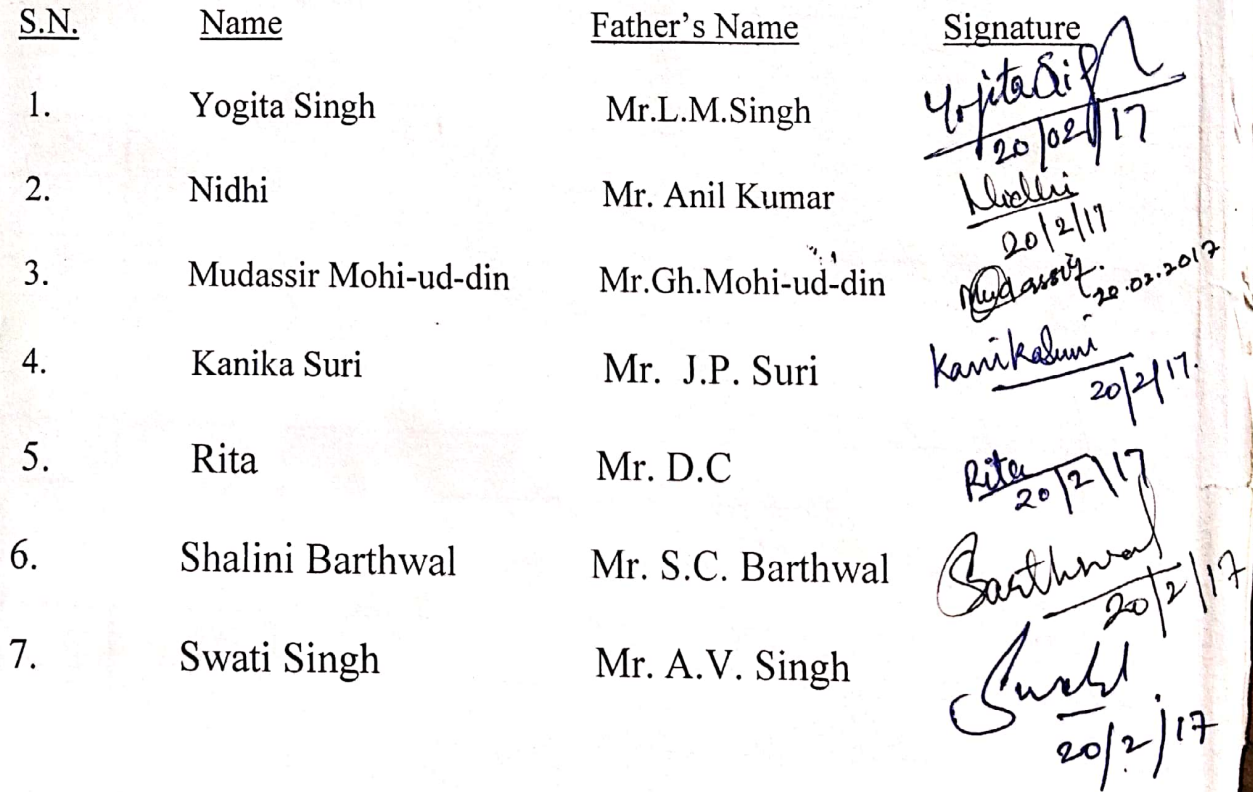 S.N. Name Father's Name Signature
1. Yogita Singh Mr.L.M.Singh Yogita
20/02/17
2. Nidhi Mr. Anil Kumar Nidhi
20/2/17
3. Mudassir Mohi-ud-din Mr.Gh.Mohi-ud-din Mudassir
20.02.2017
4. Kanika Suri Mr. J.P. Suri Kanika Suri
20/2/17.
5. Rita Mr. D.C Rita
20/2/17
6. Shalini Barthwal Mr. S.C. Barthwal Barthwal
20/2/17
7. Swati Singh Mr. A.V. Singh Swati
20/2/17